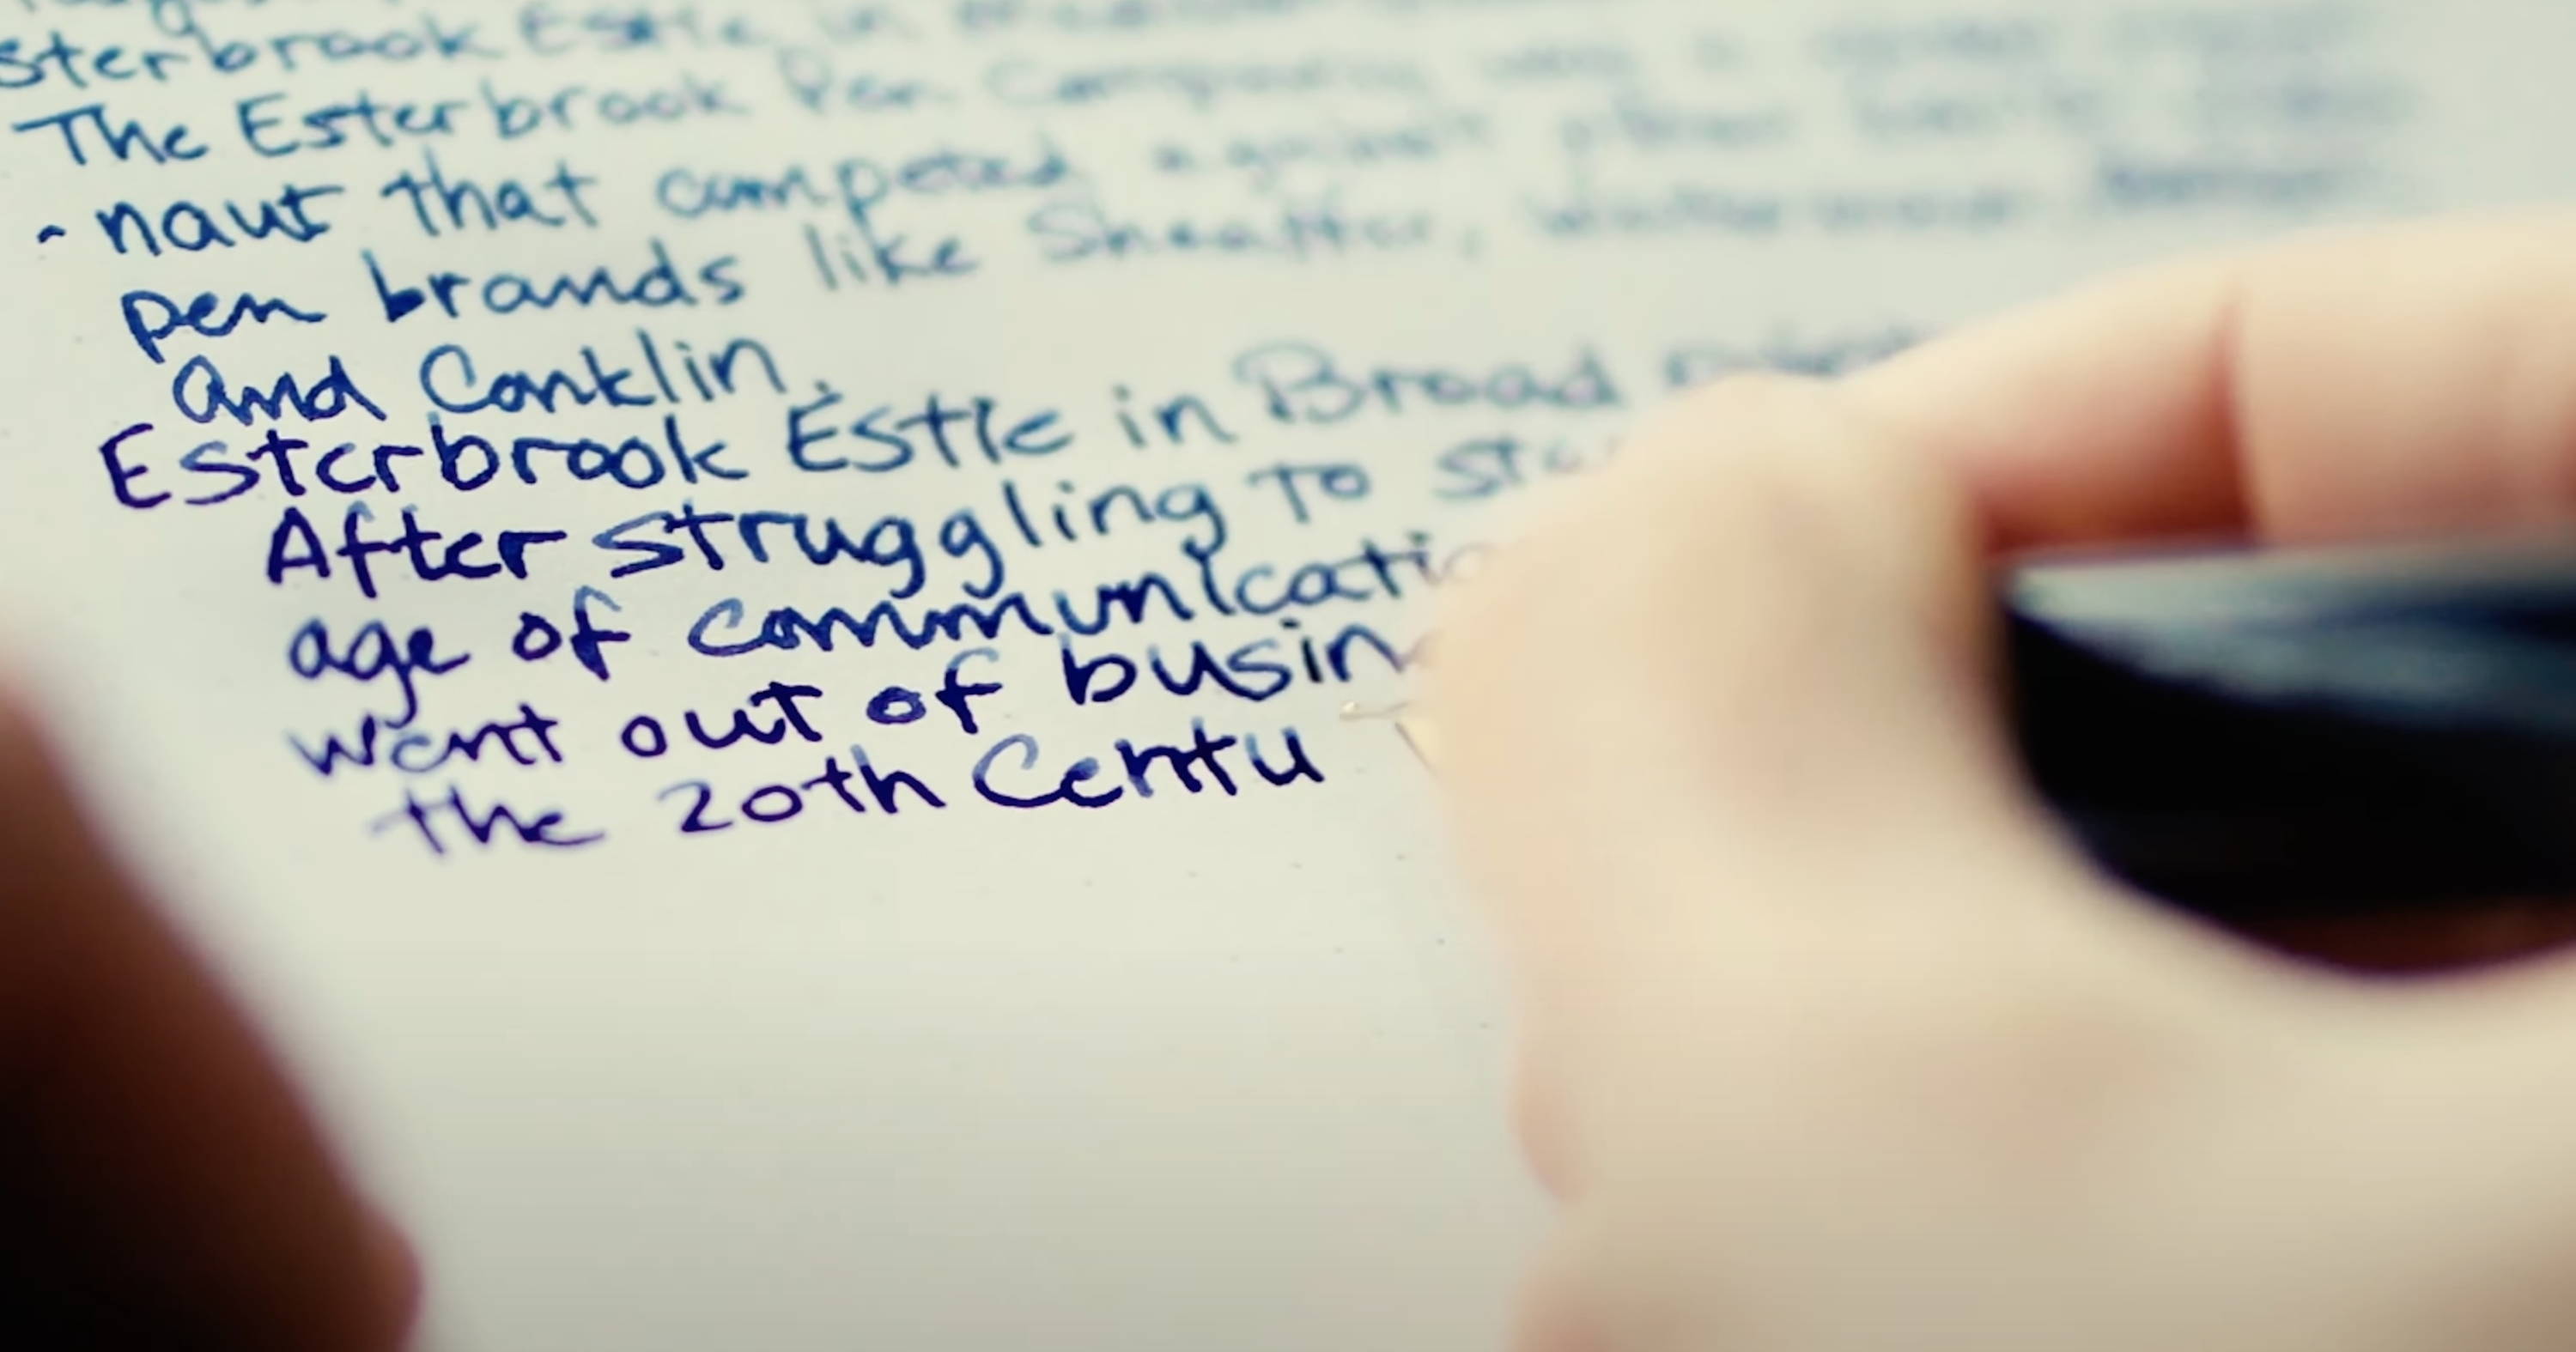 sterbrook Estie in
The Esterbrook Pen Company was a
- naut that competed against other
pen brands like Sheaffer, Waterman
and Conklin.
Esterbrook Estie in Broad
After struggling to
age of communicatio
went out of busin
the 20th Centu